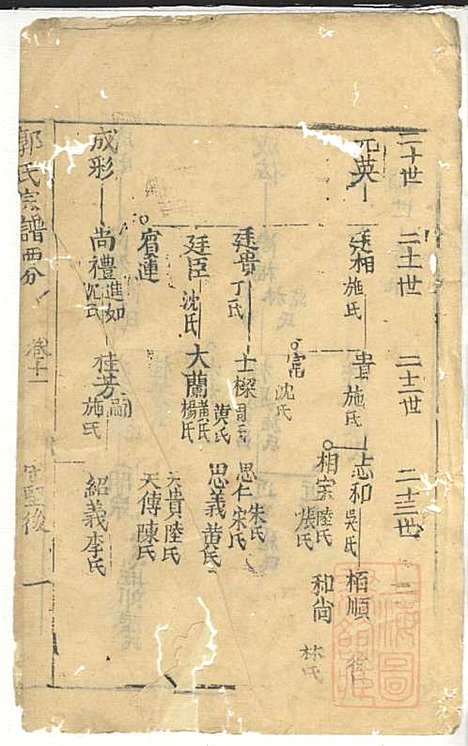 二十世 二十一世 二十二世 二十三世 二
英 廷相施氏 貴施氏 志和吳氏 栢順
沈氏 相宗陸氏張氏 和尚林氏
廷貴丁氏 士樑 思仁宋氏朱氏
廷臣沈氏 大蘭楊氏黃氏 思義黃氏
天貴陸氏
宿蓮 天傳陳氏
成彩 尚禮進如 桂芳嗣施氏 紹義李氏
郭氏宗譜西分 卷十一 後 一